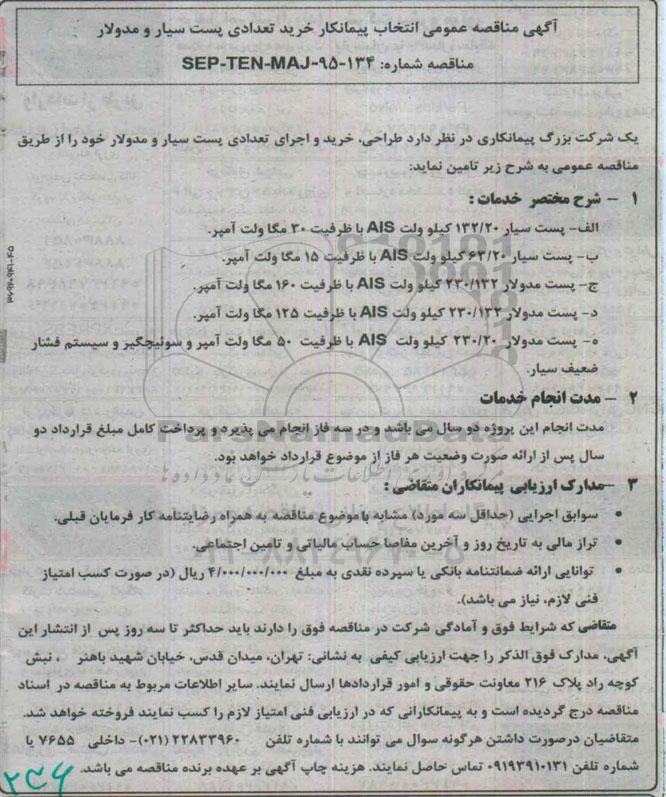 آگهی مناقصه عمومی انتخاب پیمانکار خرید تعدادی پست سیار و مدولار
مناقصه شماره: SEP-TEN-MAJ-۹۵-۱۳۴
یک شرکت بزرگ پیمانکاری در نظر دارد طراحی، خرید و اجرای تعدادی پست سیار و مدولار خود را از طریق
مناقصه عمومی به شرح زیر تامین نماید:
۱ - شرح مختصر خدمات :
الف- پست سیار ۱۳۲/۲۰ کیلو ولت AIS با ظرفیت ۳۰ مگا ولت آمپر.
ب- پست سیار ۶۳/۲۰ کیلو ولت AIS با ظرفیت ۱۵ مگا ولت آمپر.
ج- پست مدولار ۲۳۰/۱۳۲ کیلو ولت AIS با ظرفیت ۱۶۰ مگا ولت آمپر.
د- پست مدولار ۲۳۰/۱۳۲ کیلو ولت AIS با ظرفیت ۱۲۵ مگا ولت آمپر.
ه- پست مدولار ۲۳۰/۲۰ کیلو ولت AIS با ظرفیت ۵۰ مگا ولت آمپر و سوئیچگیر و سیستم فشار
ضعیف سیار.
۲ - مدت انجام خدمات
مدت انجام این پروژه دو سال می باشد و در سه فاز انجام می پذیرد و پرداخت کامل مبلغ قرارداد دو
سال پس از ارائه صورت وضعیت هر فاز از موضوع قرارداد خواهد بود.
۳ -مدارک ارزیابی پیمانکاران متقاضی :
• سوابق اجرایی (حداقل سه مورد) مشابه با موضوع مناقصه به همراه رضایتنامه کار فرمایان قبلی.
• تراز مالی به تاریخ روز و آخرین مفاصا حساب مالیاتی و تامین اجتماعی.
• توانایی ارائه ضمانتنامه بانکی یا سپرده نقدی به مبلغ ۴/۰۰۰/۰۰۰/۰۰۰ ریال (در صورت کسب امتیاز
فنی لازم، نیاز می باشد).
متقاضی که شرایط فوق و آمادگی شرکت در مناقصه فوق را دارند باید حداکثر تا سه روز پس از انتشار این
آگهی، مدارک فوق الذکر را جهت ارزیابی کیفی به نشانی: تهران، میدان قدس، خیابان شهید باهنر ، نبش
کوچه راد پلاک ۲۱۶ معاونت حقوقی و امور قراردادها ارسال نمایند. سایر اطلاعات مربوط به مناقصه در اسناد
مناقصه درج گردیده است و به پیمانکارانی که در ارزیابی فنی امتیاز لازم را کسب نمایند فروخته خواهد شد.
متقاضیان درصورت داشتن هرگونه سوال می توانند با شماره تلفن ۲۲۸۳۳۹۶۰ (۰۲۱)- داخلی ۷۶۵۵ یا
شماره تلفن ۰۹۱۹۳۹۱۰۱۳۱ تماس حاصل نمایند. هزینه چاپ آگهی بر عهده برنده مناقصه می باشد.
ParsNamadData